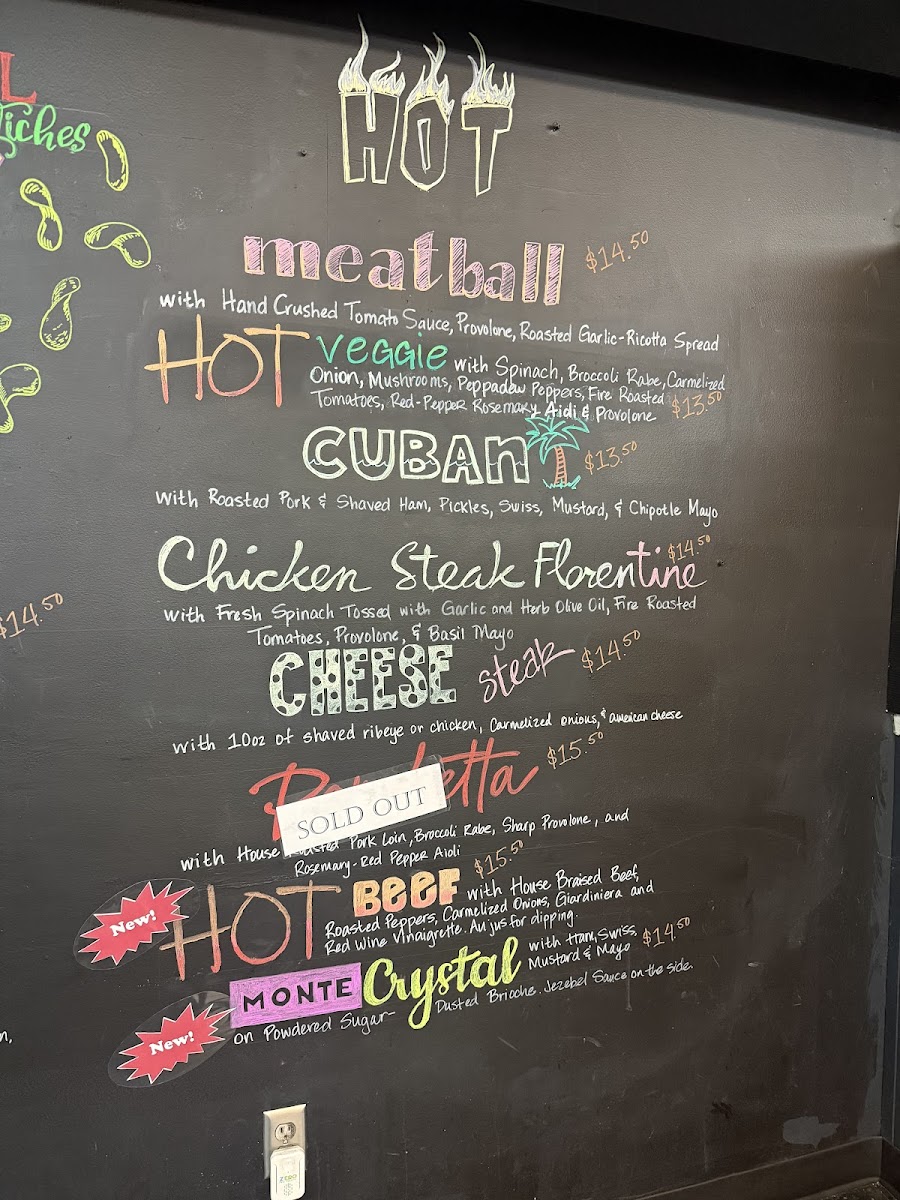 L
iches
HOT
meatball $14.50
with Hand Crushed Tomato Sauce, Provolone, Roasted Garlic-Ricotta Spread
HOT veggie with Spinach, Broccoli Rabe, Carmelized
Onion, Mushrooms, Peppadew Peppers, Fire Roasted
Tomatoes, Red-Pepper Rosemary Aidi & Provolone $13.50
CUBAN $13.50
with Roasted Pork & Shaved Ham, Pickles, Swiss, Mustard, & Chipotle Mayo
Chicken Steak Florentine $14.50
with Fresh Spinach Tossed with Garlic and Herb Olive Oil, Fire Roasted
Tomatoes, Provolone, & Basil Mayo
$14.50
CHEESE steak $14.50
with 10oz of shaved ribeye or chicken, Carmelized onions, & american cheese
$15.50
SOLD OUT
with House Pork Loin, Broccoli Rabe, Sharp Provolone, and
Rosemary-Red Pepper Aioli
New! HOT BEEF $15.50 with House Braised Beef,
Roasted Peppers, Carmelized Onions, Giardiniera and
Red Wine Vinaigrette. Au jus for dipping.
MONTE Crystal with Ham, Swiss, $14.50
Mustard & Mayo
New! on Powdered Sugar- Dusted Brioche. Jezebel Sauce on the side.